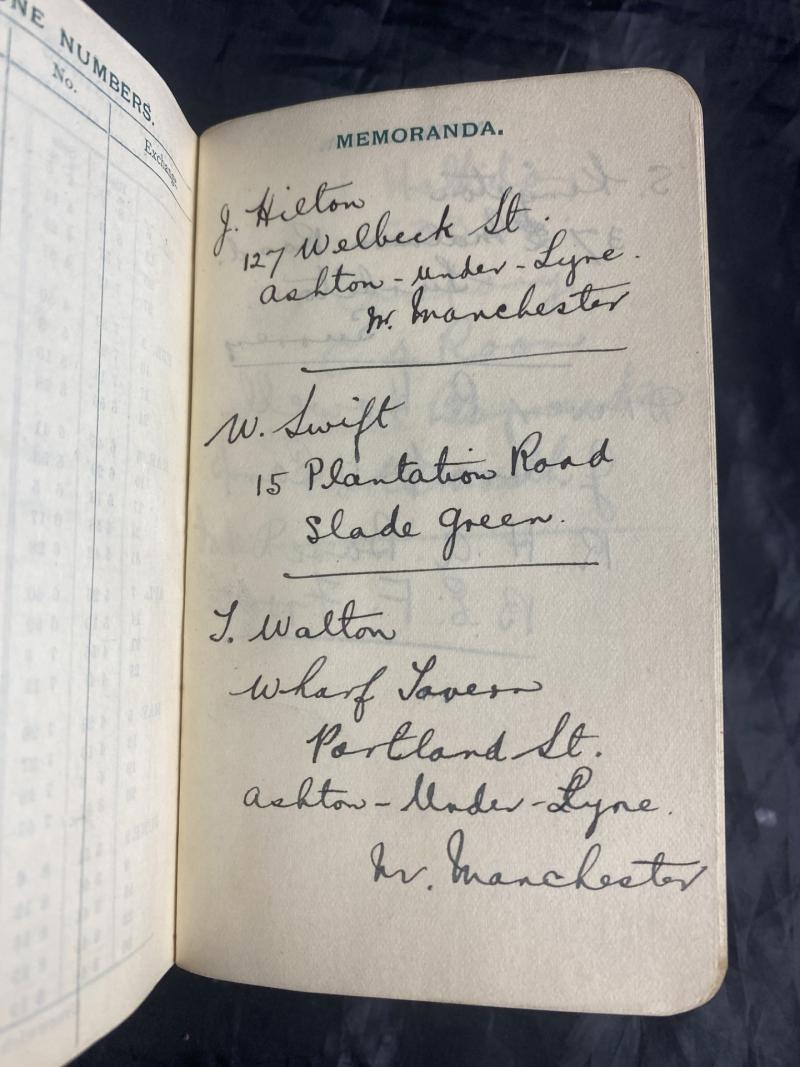 ONE NUMBERS.
No.
Exchange.
MEMORANDA.
J. Hilton
127 Welbeck St.
Ashton-under-Lyne.
Nr. Manchester
W. Swift
15 Plantation Road
Slade Green.
T. Walton
Wharf Tavern
Portland St.
Ashton-Under-Lyne.
Nr. Manchester